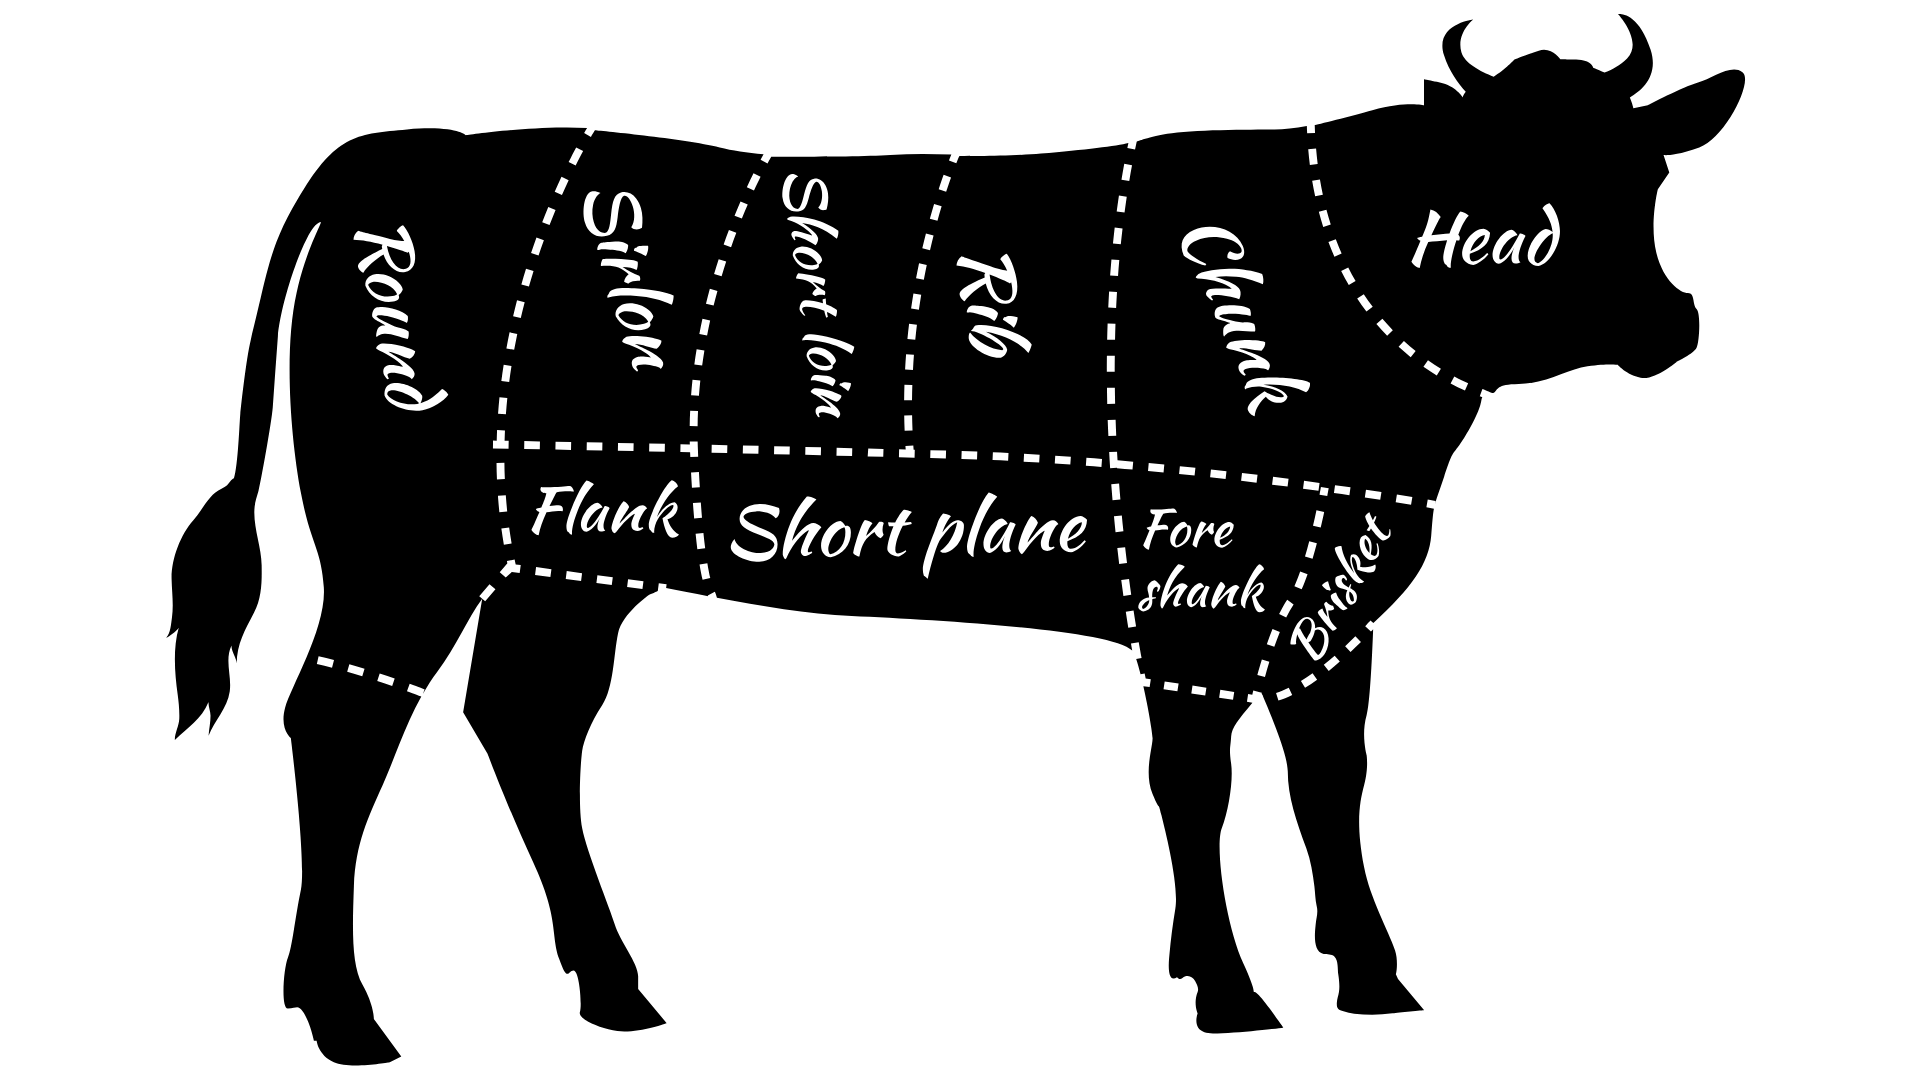 Round
Sirlon
Short loin
Rib
Chunk
Head
Flank
Short plane
Fore
shank
Brisket